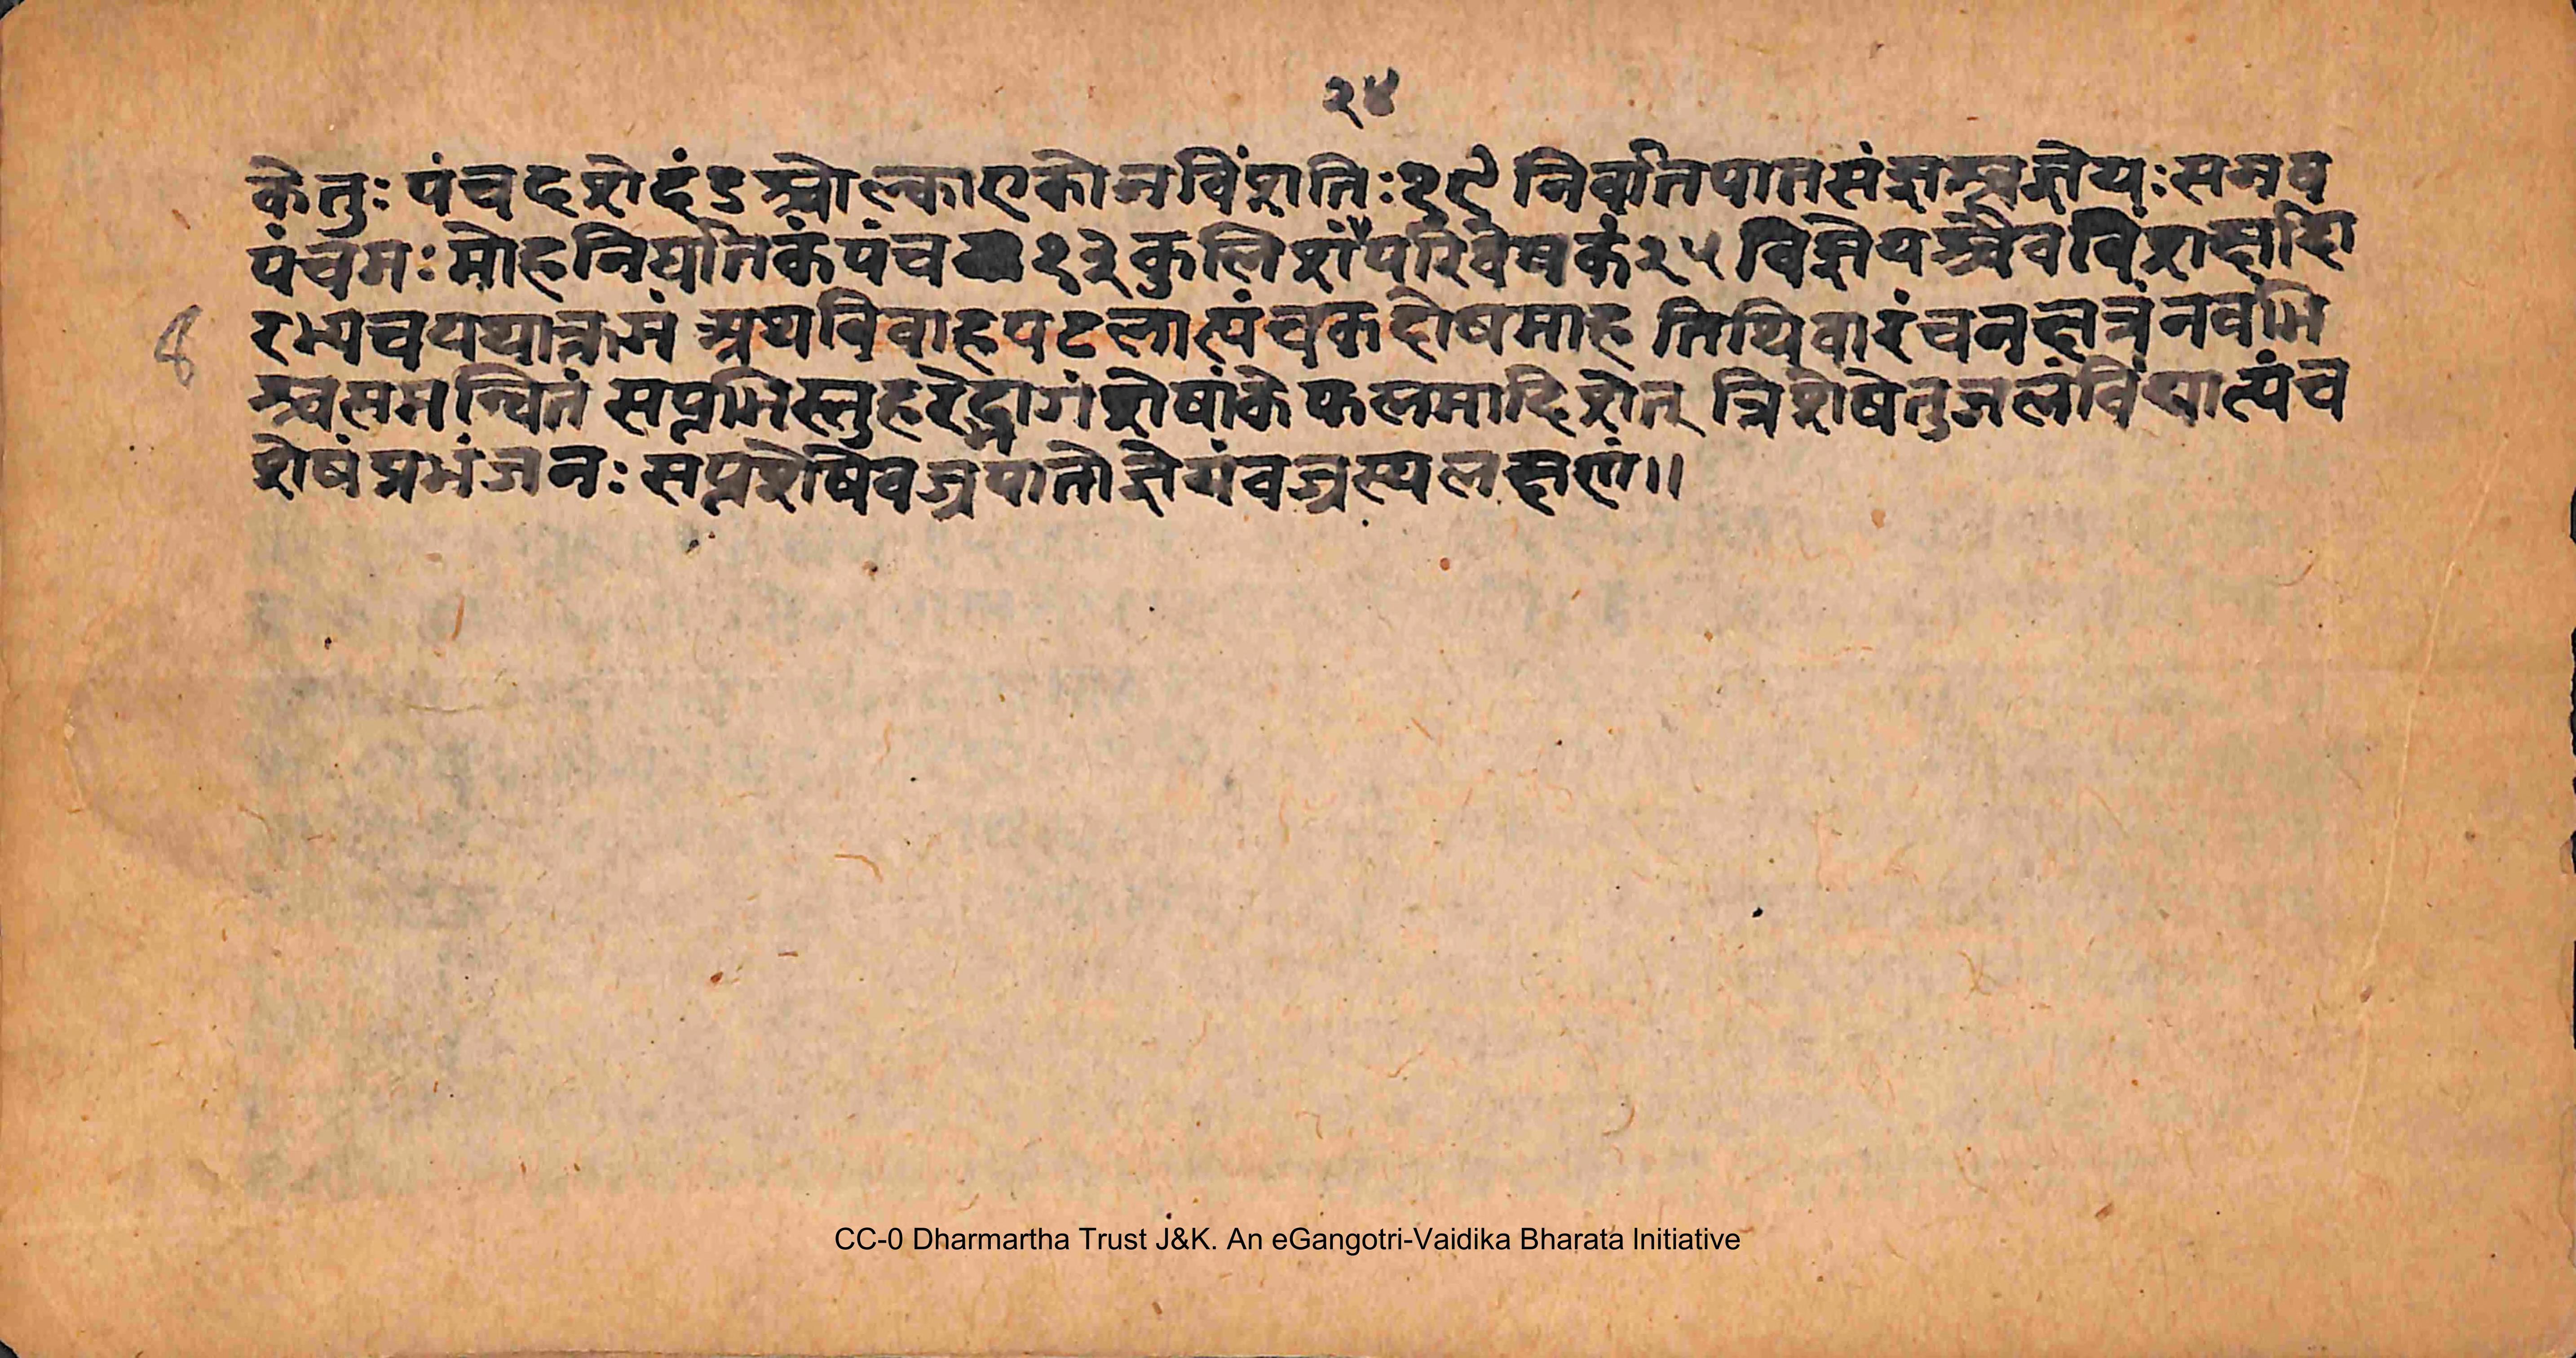 २४
केतुः पंचदशेदंडश्चोल्काएकोनविंशतिः१९ निर्घातपातसंज्ञश्चज्ञेयःसनव
पंचमः मोहनिर्घातकंपंच २३ कुलिशंपरिवेषकं२५ विज्ञेयश्चैवविंशाक्षादा
रभ्यचयथाक्रमं अथविवाहपटलात्पंचकदोषमाह तिथिवारंचनक्षत्रंनवभि
श्चसमन्वितं सप्तभिस्तुहरेद्भागंशेषांकेफलमादिशेत् त्रिशेषेतुजलंविंद्यात्पंच
शेषंप्रभंजनः सप्तशेषेवज्रपातोज्ञेयंवज्रस्यलक्षणं॥
CC-0 Dharmartha Trust J&K. An eGangotri-Vaidika Bharata Initiative